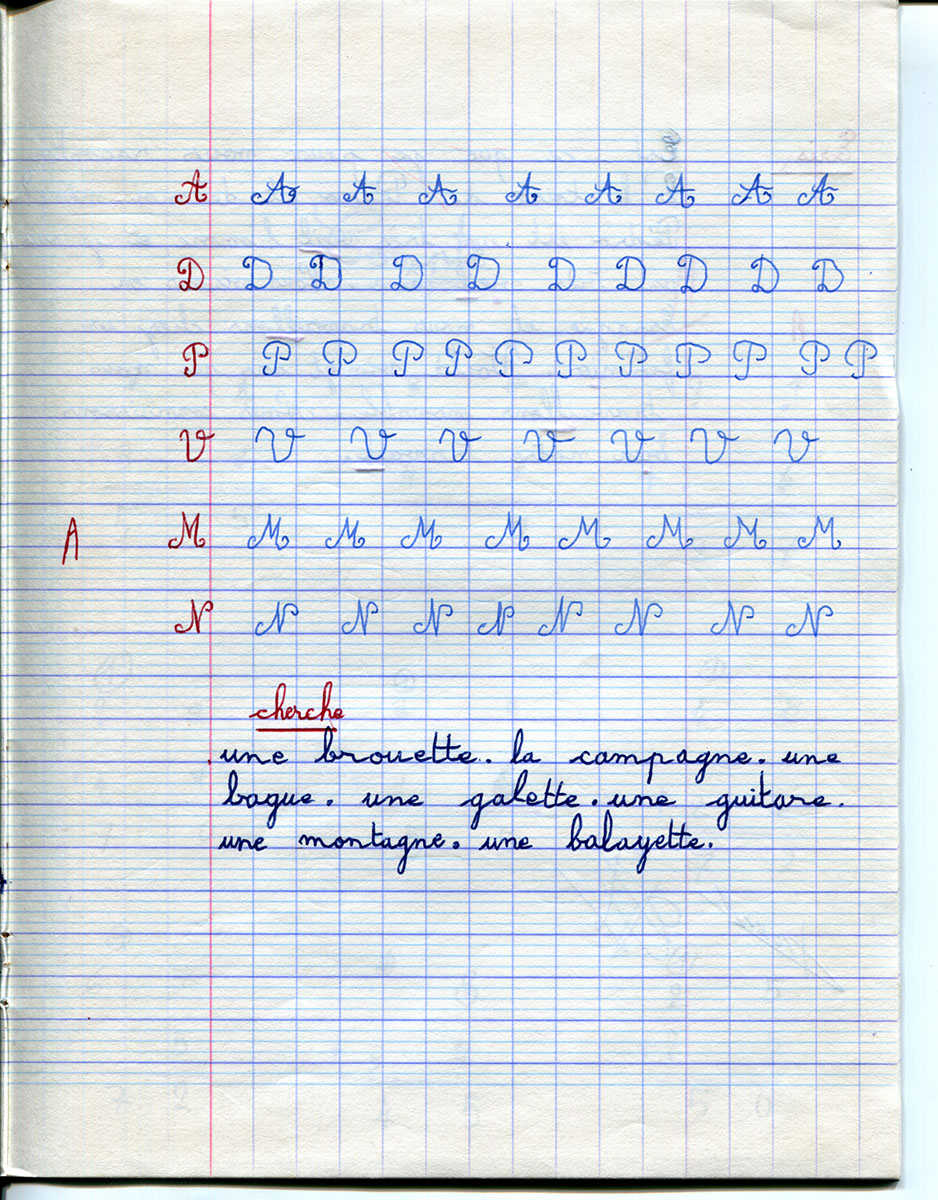 A A A A A A A A A
D D D D D D D D D D
P P P P P P P P P P P P
V V V V V V V V
A M M M M M M M M M
N N N N N N N N N
cherche
une brouette. la campagne. une
bague. une galette. une guitare.
une montagne. une balayette.